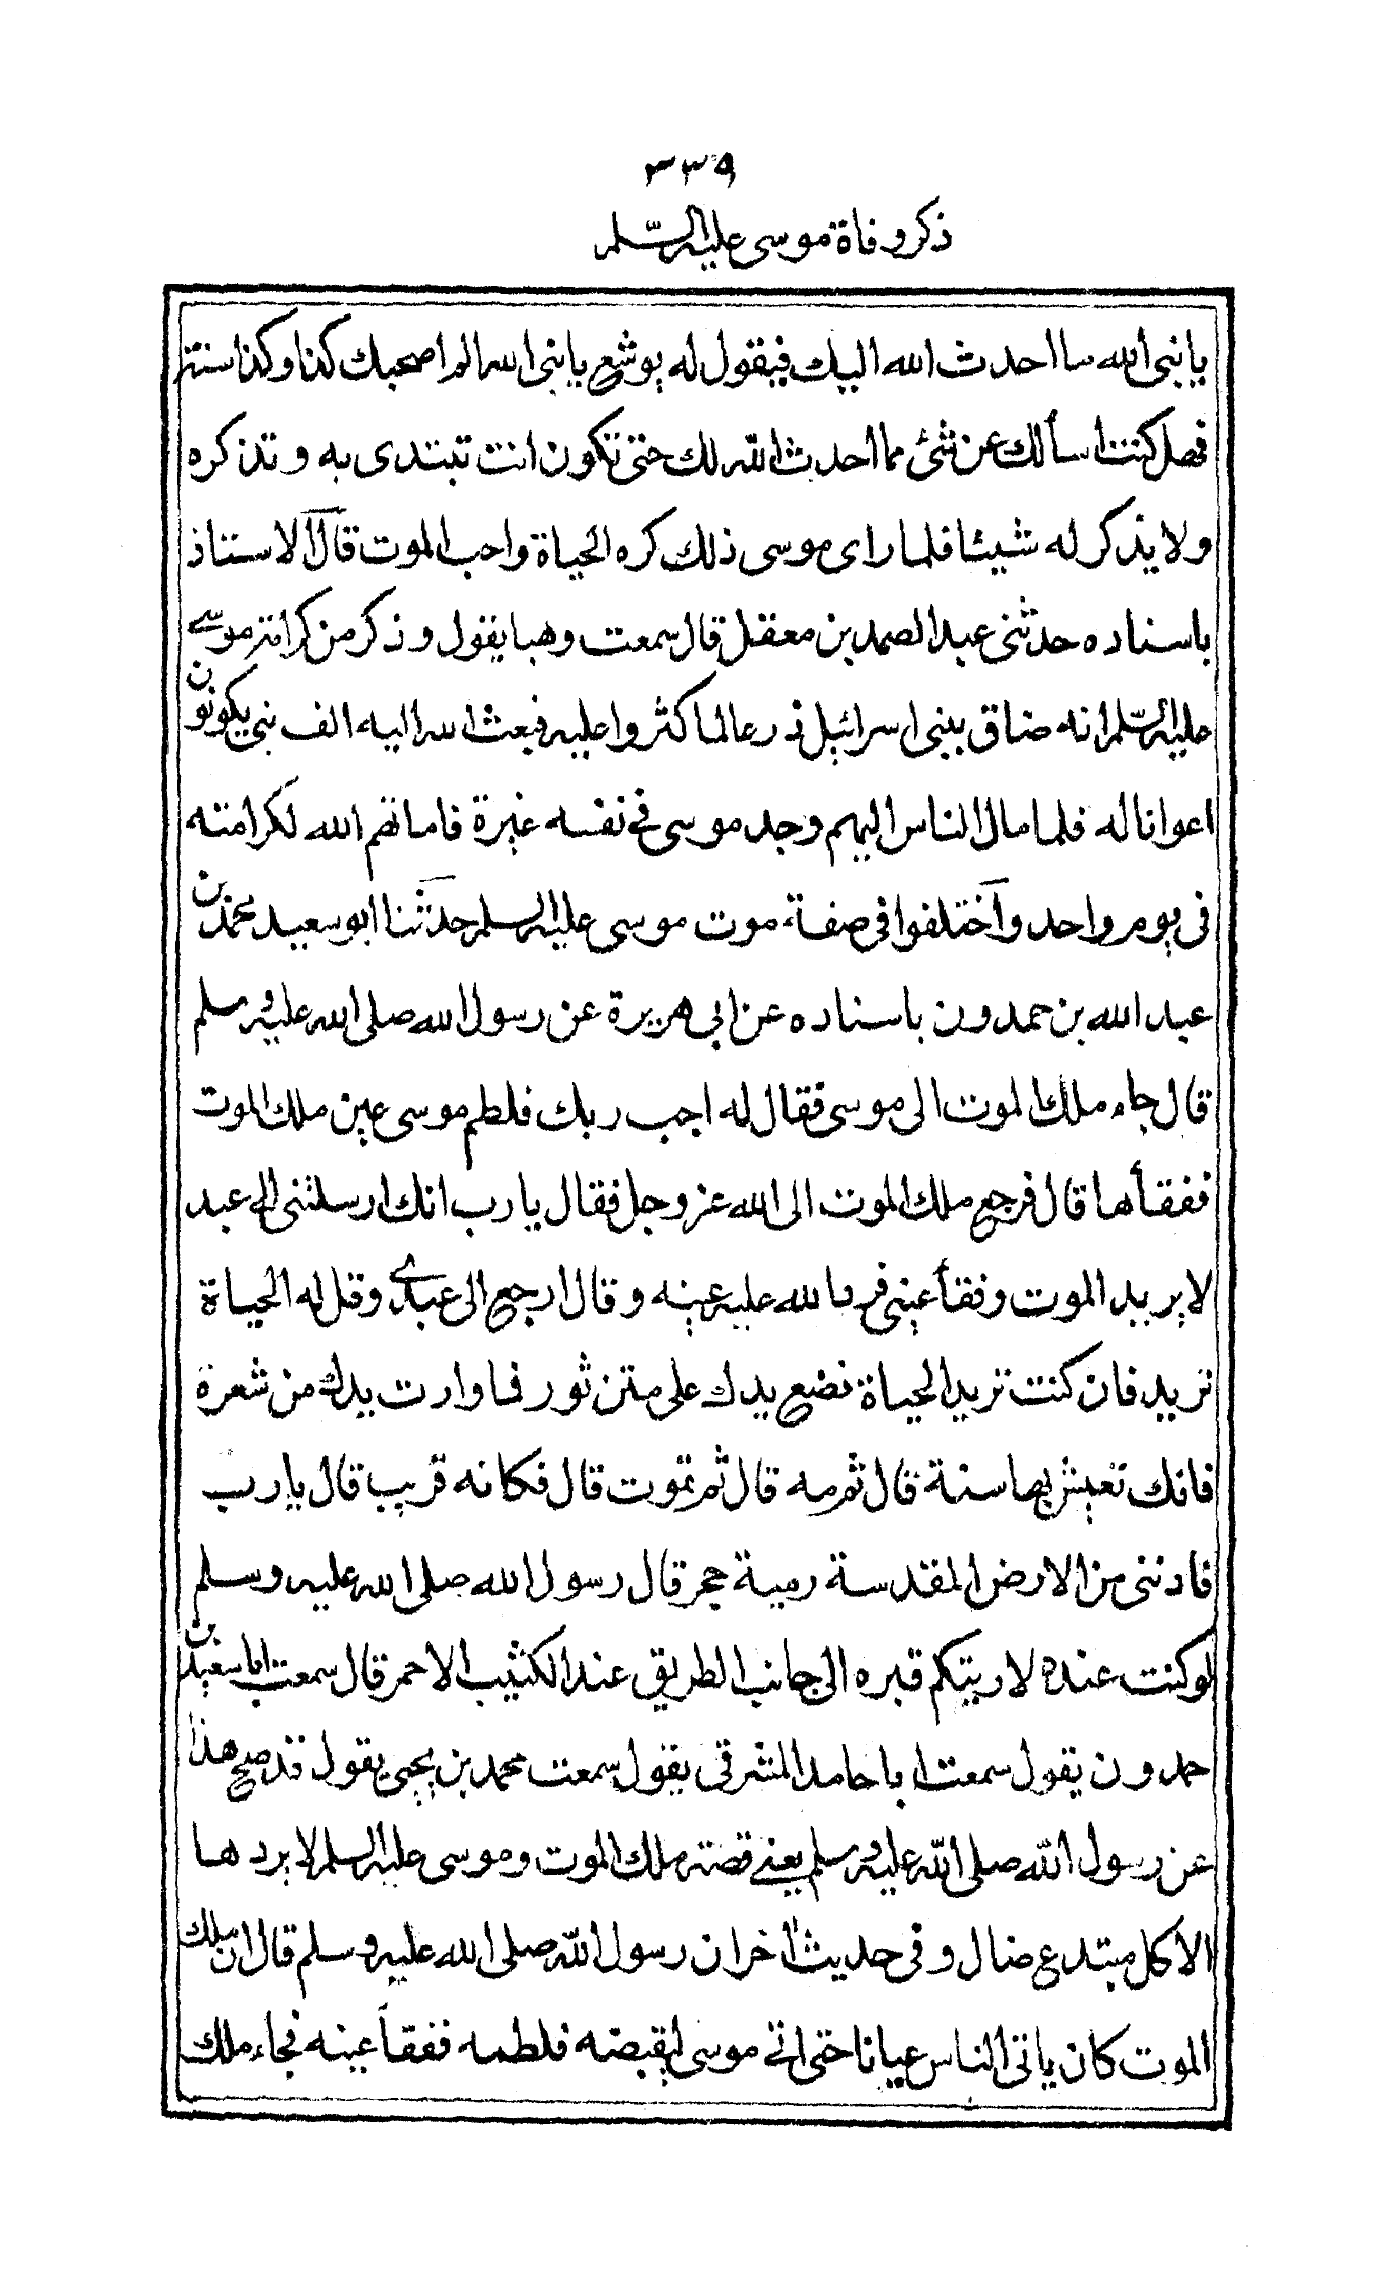 ٣٣٩
ذكر وفاة موسى عليه السّلم
يا نبى الله ما احدث الله اليك فيقول له يوشع يا نبى الله الم اصحبك كذا وكذا سنة
فهل كنت أسألك عن شئ مما احدث الله لك حتى تكون انت تبتدى به وتذكره
ولا يذكر له شيئا فلما راى موسى ذلك كره الحياة واحب الموت قال الاستاذ
باسناده حدثنى عبد الصمد بن معقل قال سمعت وهبا يقول وذكر من كرامة موسى
عليه السّلم انه ضاق ببنى اسرائيل ذرعا لما كثروا عليه فبعث الله اليه الف نبى يكونون
اعوانا له فلما مال الناس اليهم وجد موسى فى نفسه غيرة فاماتهم الله لكرامته
فى يوم واحد واختلفوا فى صفة موت موسى عليه السلم حدثنا ابو سعيد محمد بن
عبد الله بن حمدون باسناده عن ابى هريرة عن رسول الله صلى الله عليه وسلم
قال جاء ملك الموت الى موسى فقال له اجب ربك فلطم موسى عين ملك الموت
ففقأها قال فرجع ملك الموت الى الله عز وجل فقال يا رب انك ارسلتنى الى عبد
لا يريد الموت وفقأ عينى فرد الله عليه عينه وقال ارجع الى عبدى وقل له الحياة
تريد فان كنت تريد الحياة فضع يدك على متن ثور فما وارت يدك من شعرة
فانك تعيش بها سنة قال ثم مه قال ثم تموت قال فكانه قريب قال يا رب
فادننى من الارض المقدسة رمية حجر قال رسول الله صلى الله عليه وسلم
لو كنت عنده لاريتكم قبره الى جانب الطريق عند الكثيب الاحمر قال سمعت ابا سعيد بن
حمدون يقول سمعت ابا حامد المشرقى يقول سمعت محمد بن يحيى يقول قد صح هذا
عن رسول الله صلى الله عليه وسلم يعنى قصة ملك الموت وموسى عليه السلم لا يردها
الا كل مبتدع ضال وفى حديث اخر ان رسول الله صلى الله عليه وسلم قال ان ملك
الموت كان ياتى الناس عيانا حتى اتى موسى ليقبضه فلطمه ففقأ عينه فجاء ملك